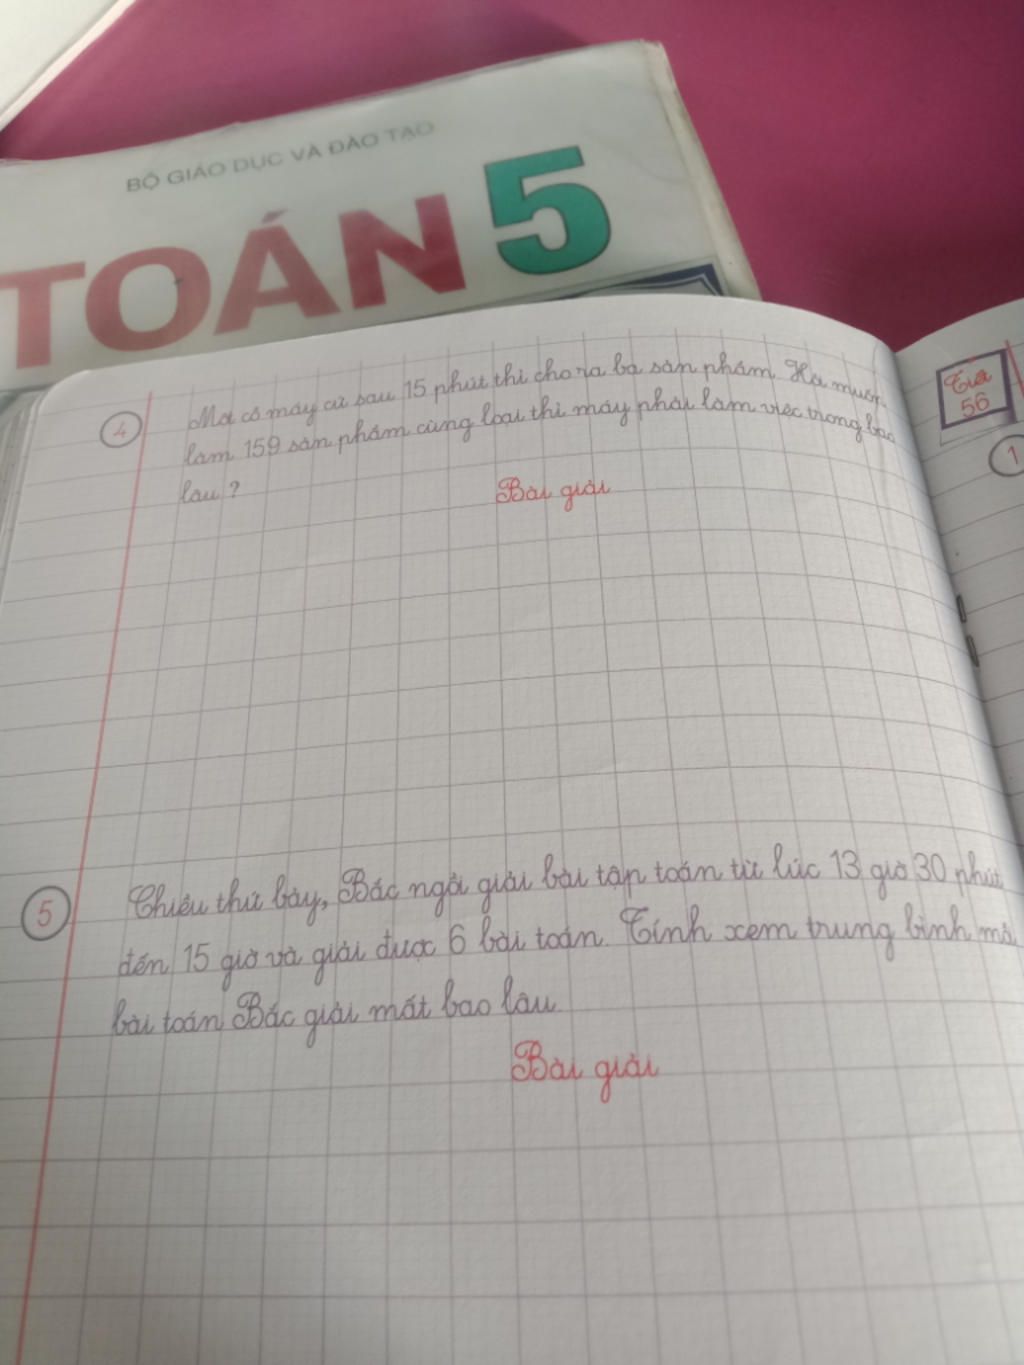 BỘ GIÁO DỤC VÀ ĐÀO TẠO
TOÁN 5
4
Một cỗ máy cứ sau 15 phút thì cho ra ba sản phẩm. Hỏi muốn
làm 159 sản phẩm cùng loại thì máy phải làm việc trong bao
lâu ?
Bài giải
5
Chiều thứ bảy, Bắc ngồi giải bài tập toán từ lúc 13 giờ 30 phút
đến 15 giờ và giải được 6 bài toán. Tính xem trung bình mỗi
bài toán Bắc giải mất bao lâu.
Bài giải
Tiết
56
1